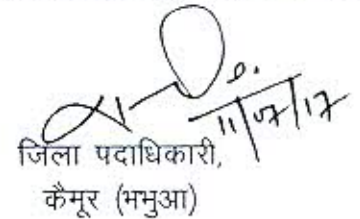 11/07/17
जिला पदाधिकारी,
कैमूर (भभुआ)